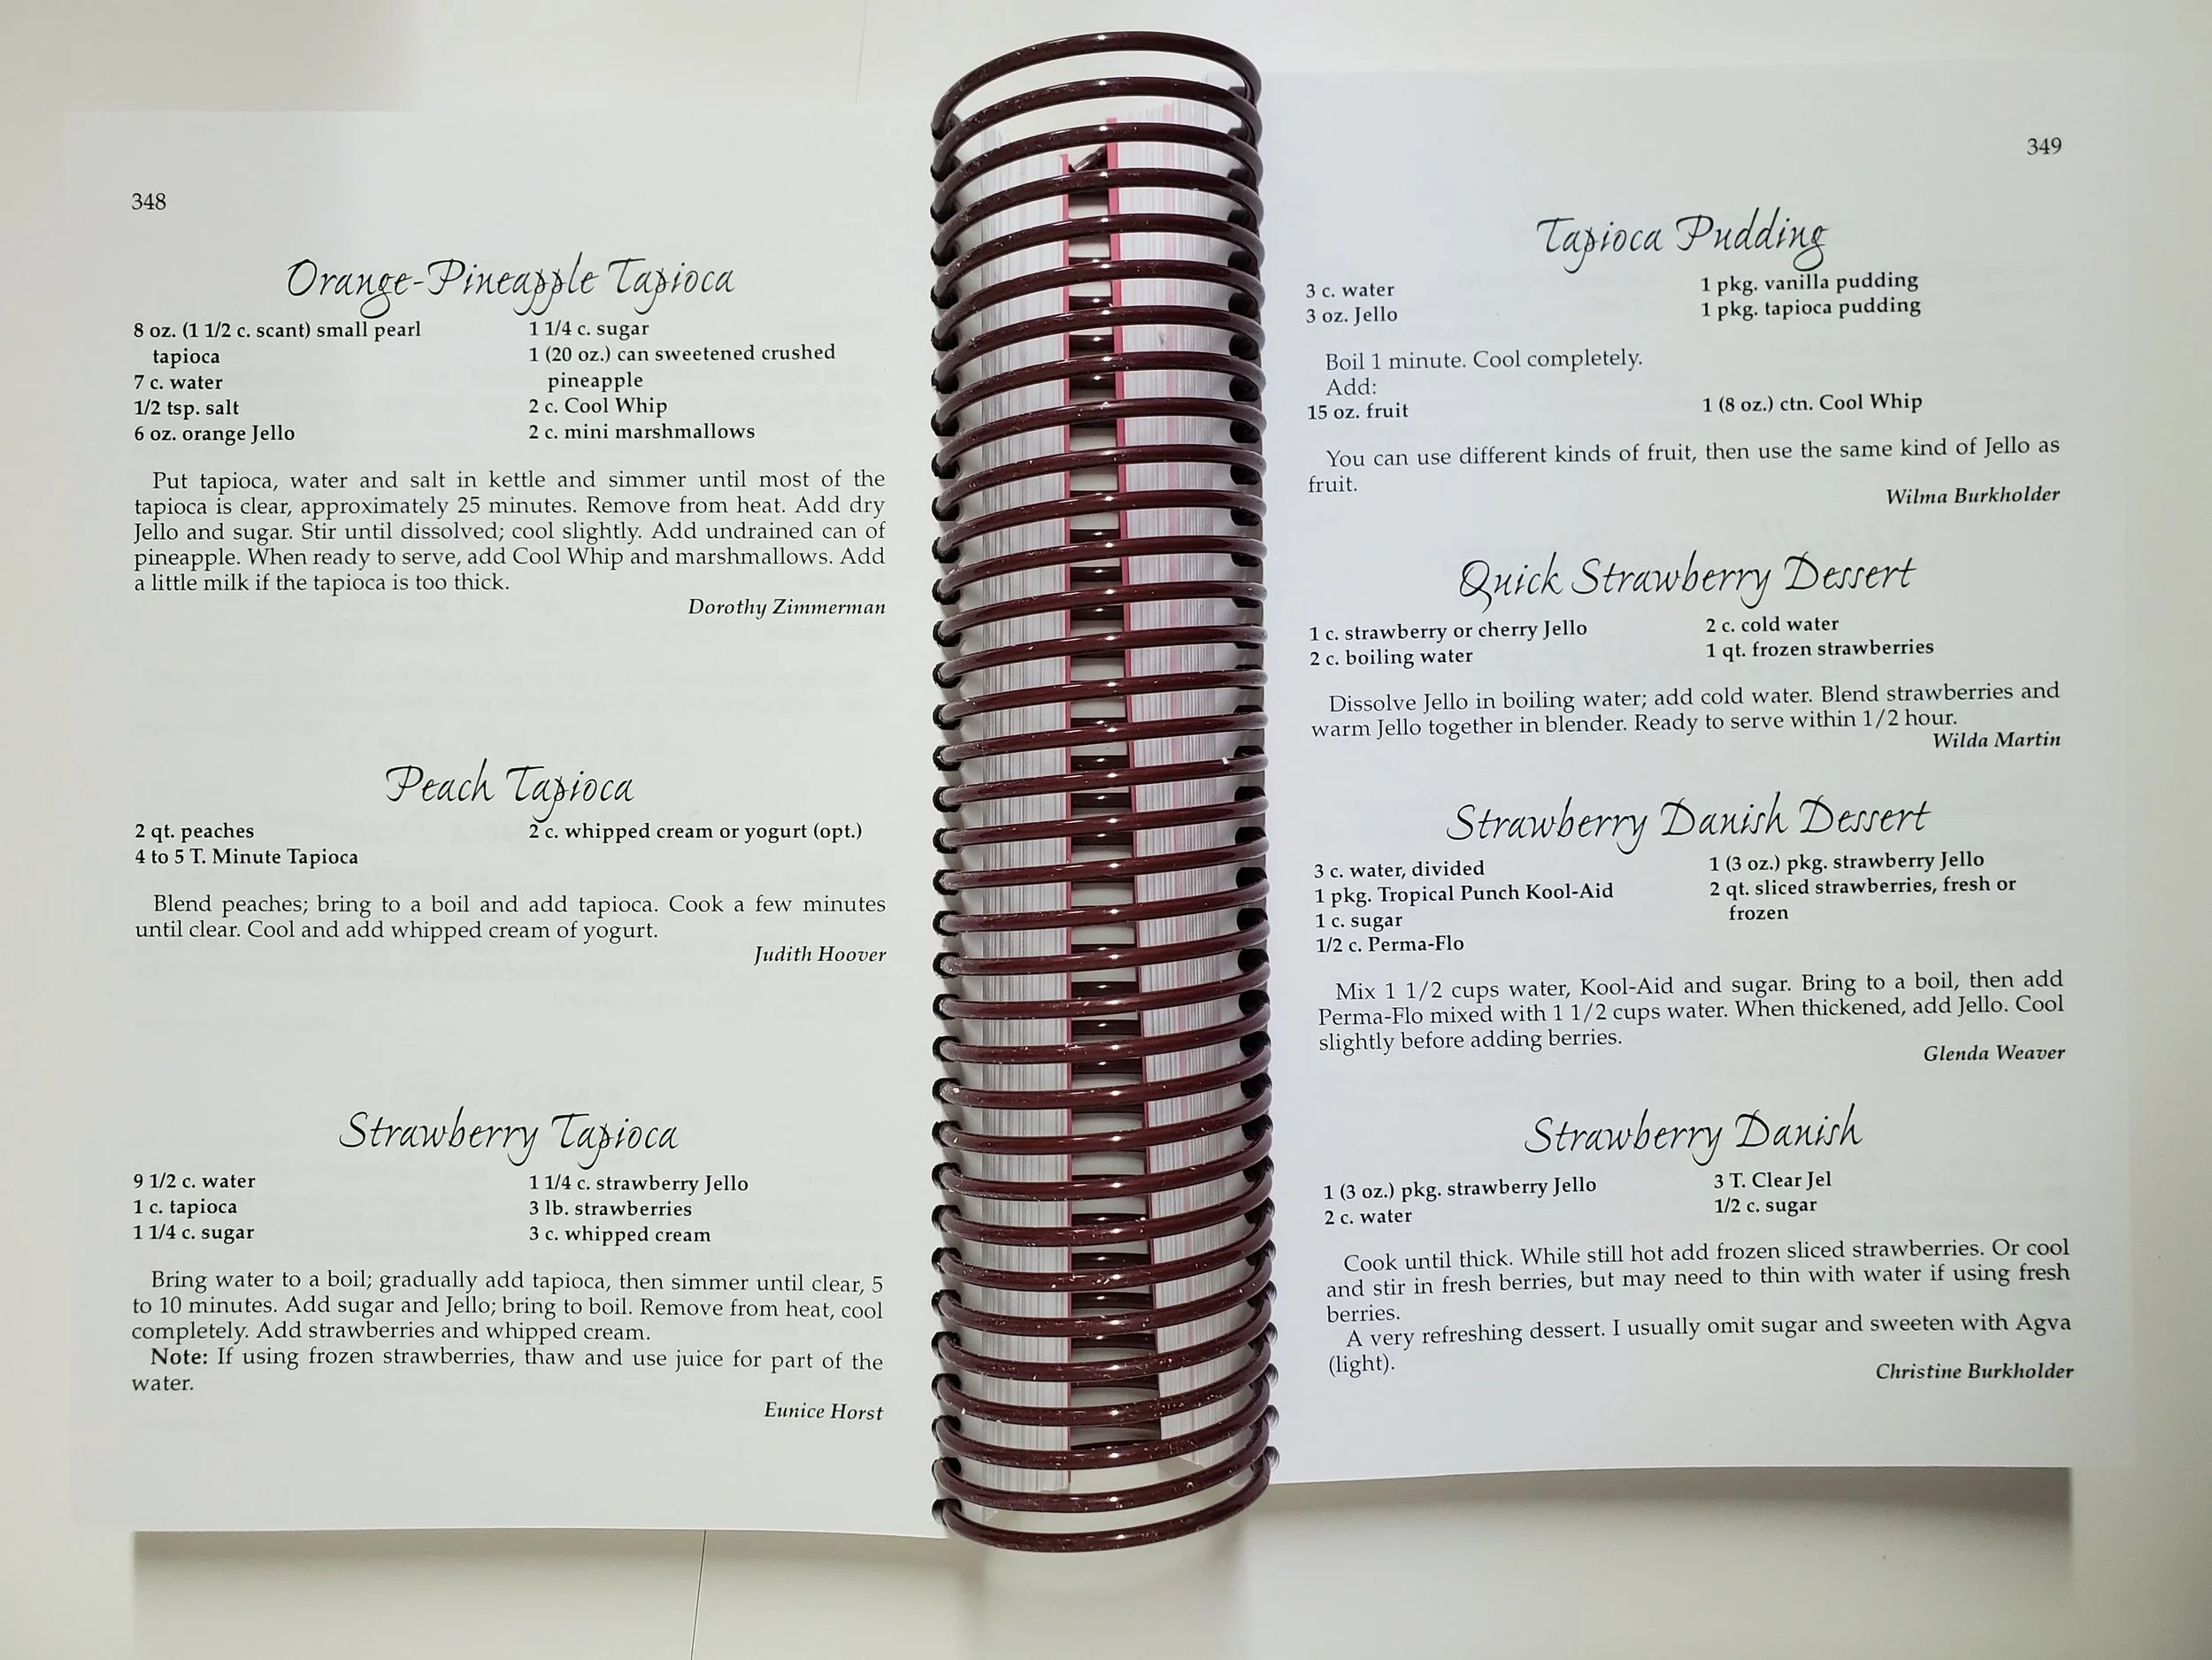 348
Orange-Pineapple Tapioca
8 oz. (1 1/2 c. scant) small pearl
tapioca
7 c. water
1/2 tsp. salt
6 oz. orange Jello
1 1/4 c. sugar
1 (20 oz.) can sweetened crushed
pineapple
2 c. Cool Whip
2 c. mini marshmallows
Put tapioca, water and salt in kettle and simmer until most of the
tapioca is clear, approximately 25 minutes. Remove from heat. Add dry
Jello and sugar. Stir until dissolved; cool slightly. Add undrained can of
pineapple. When ready to serve, add Cool Whip and marshmallows. Add
a little milk if the tapioca is too thick.
Dorothy Zimmerman
Peach Tapioca
2 qt. peaches
4 to 5 T. Minute Tapioca
2 c. whipped cream or yogurt (opt.)
Blend peaches; bring to a boil and add tapioca. Cook a few minutes
until clear. Cool and add whipped cream of yogurt.
Judith Hoover
Strawberry Tapioca
9 1/2 c. water
1 c. tapioca
1 1/4 c. sugar
1 1/4 c. strawberry Jello
3 lb. strawberries
3 c. whipped cream
Bring water to a boil; gradually add tapioca, then simmer until clear, 5
to 10 minutes. Add sugar and Jello; bring to boil. Remove from heat, cool
completely. Add strawberries and whipped cream.
Note: If using frozen strawberries, thaw and use juice for part of the
water.
Eunice Horst
349
Tapioca Pudding
3 c. water
3 oz. Jello
1 pkg. vanilla pudding
1 pkg. tapioca pudding
Boil 1 minute. Cool completely.
Add:
15 oz. fruit
1 (8 oz.) ctn. Cool Whip
You can use different kinds of fruit, then use the same kind of Jello as
fruit.
Wilma Burkholder
Quick Strawberry Dessert
1 c. strawberry or cherry Jello
2 c. boiling water
2 c. cold water
1 qt. frozen strawberries
Dissolve Jello in boiling water; add cold water. Blend strawberries and
warm Jello together in blender. Ready to serve within 1/2 hour.
Wilda Martin
Strawberry Danish Dessert
3 c. water, divided
1 pkg. Tropical Punch Kool-Aid
1 c. sugar
1/2 c. Perma-Flo
1 (3 oz.) pkg. strawberry Jello
2 qt. sliced strawberries, fresh or
frozen
Mix 1 1/2 cups water, Kool-Aid and sugar. Bring to a boil, then add
Perma-Flo mixed with 1 1/2 cups water. When thickened, add Jello. Cool
slightly before adding berries.
Glenda Weaver
Strawberry Danish
1 (3 oz.) pkg. strawberry Jello
2 c. water
3 T. Clear Jel
1/2 c. sugar
Cook until thick. While still hot add frozen sliced strawberries. Or cool
and stir in fresh berries, but may need to thin with water if using fresh
berries.
A very refreshing dessert. I usually omit sugar and sweeten with Agva
(light).
Christine Burkholder